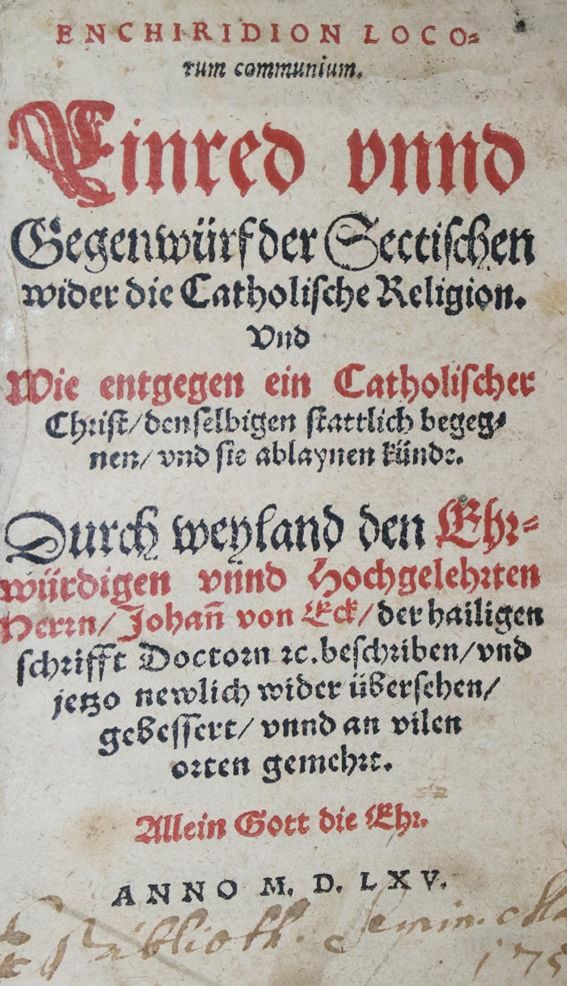 ENCHIRIDION LOCO⸗
rum communium.
Einred vnnd
Gegenwürf der Sectischen
wider die Catholische Religion.
Vnd
Wie entgegen ein Catholischer
Christ/ denselbigen stattlich begeg⸗
nen/ vnd sie ablaynen künde.
Durch weyland den Ehr⸗
würdigen vnnd Hochgelehrten
Herrn/ Johañ von Eck/ der hailigen
schrifft Doctorn ꝛc. beschriben/ vnd
jetzo newlich wider übersehen/
gebessert/ vnnd an vilen
orten gemehrt.
Allein Gott die Ehr.
ANNO M. D. LXV.
Biblioth. Semin.
175